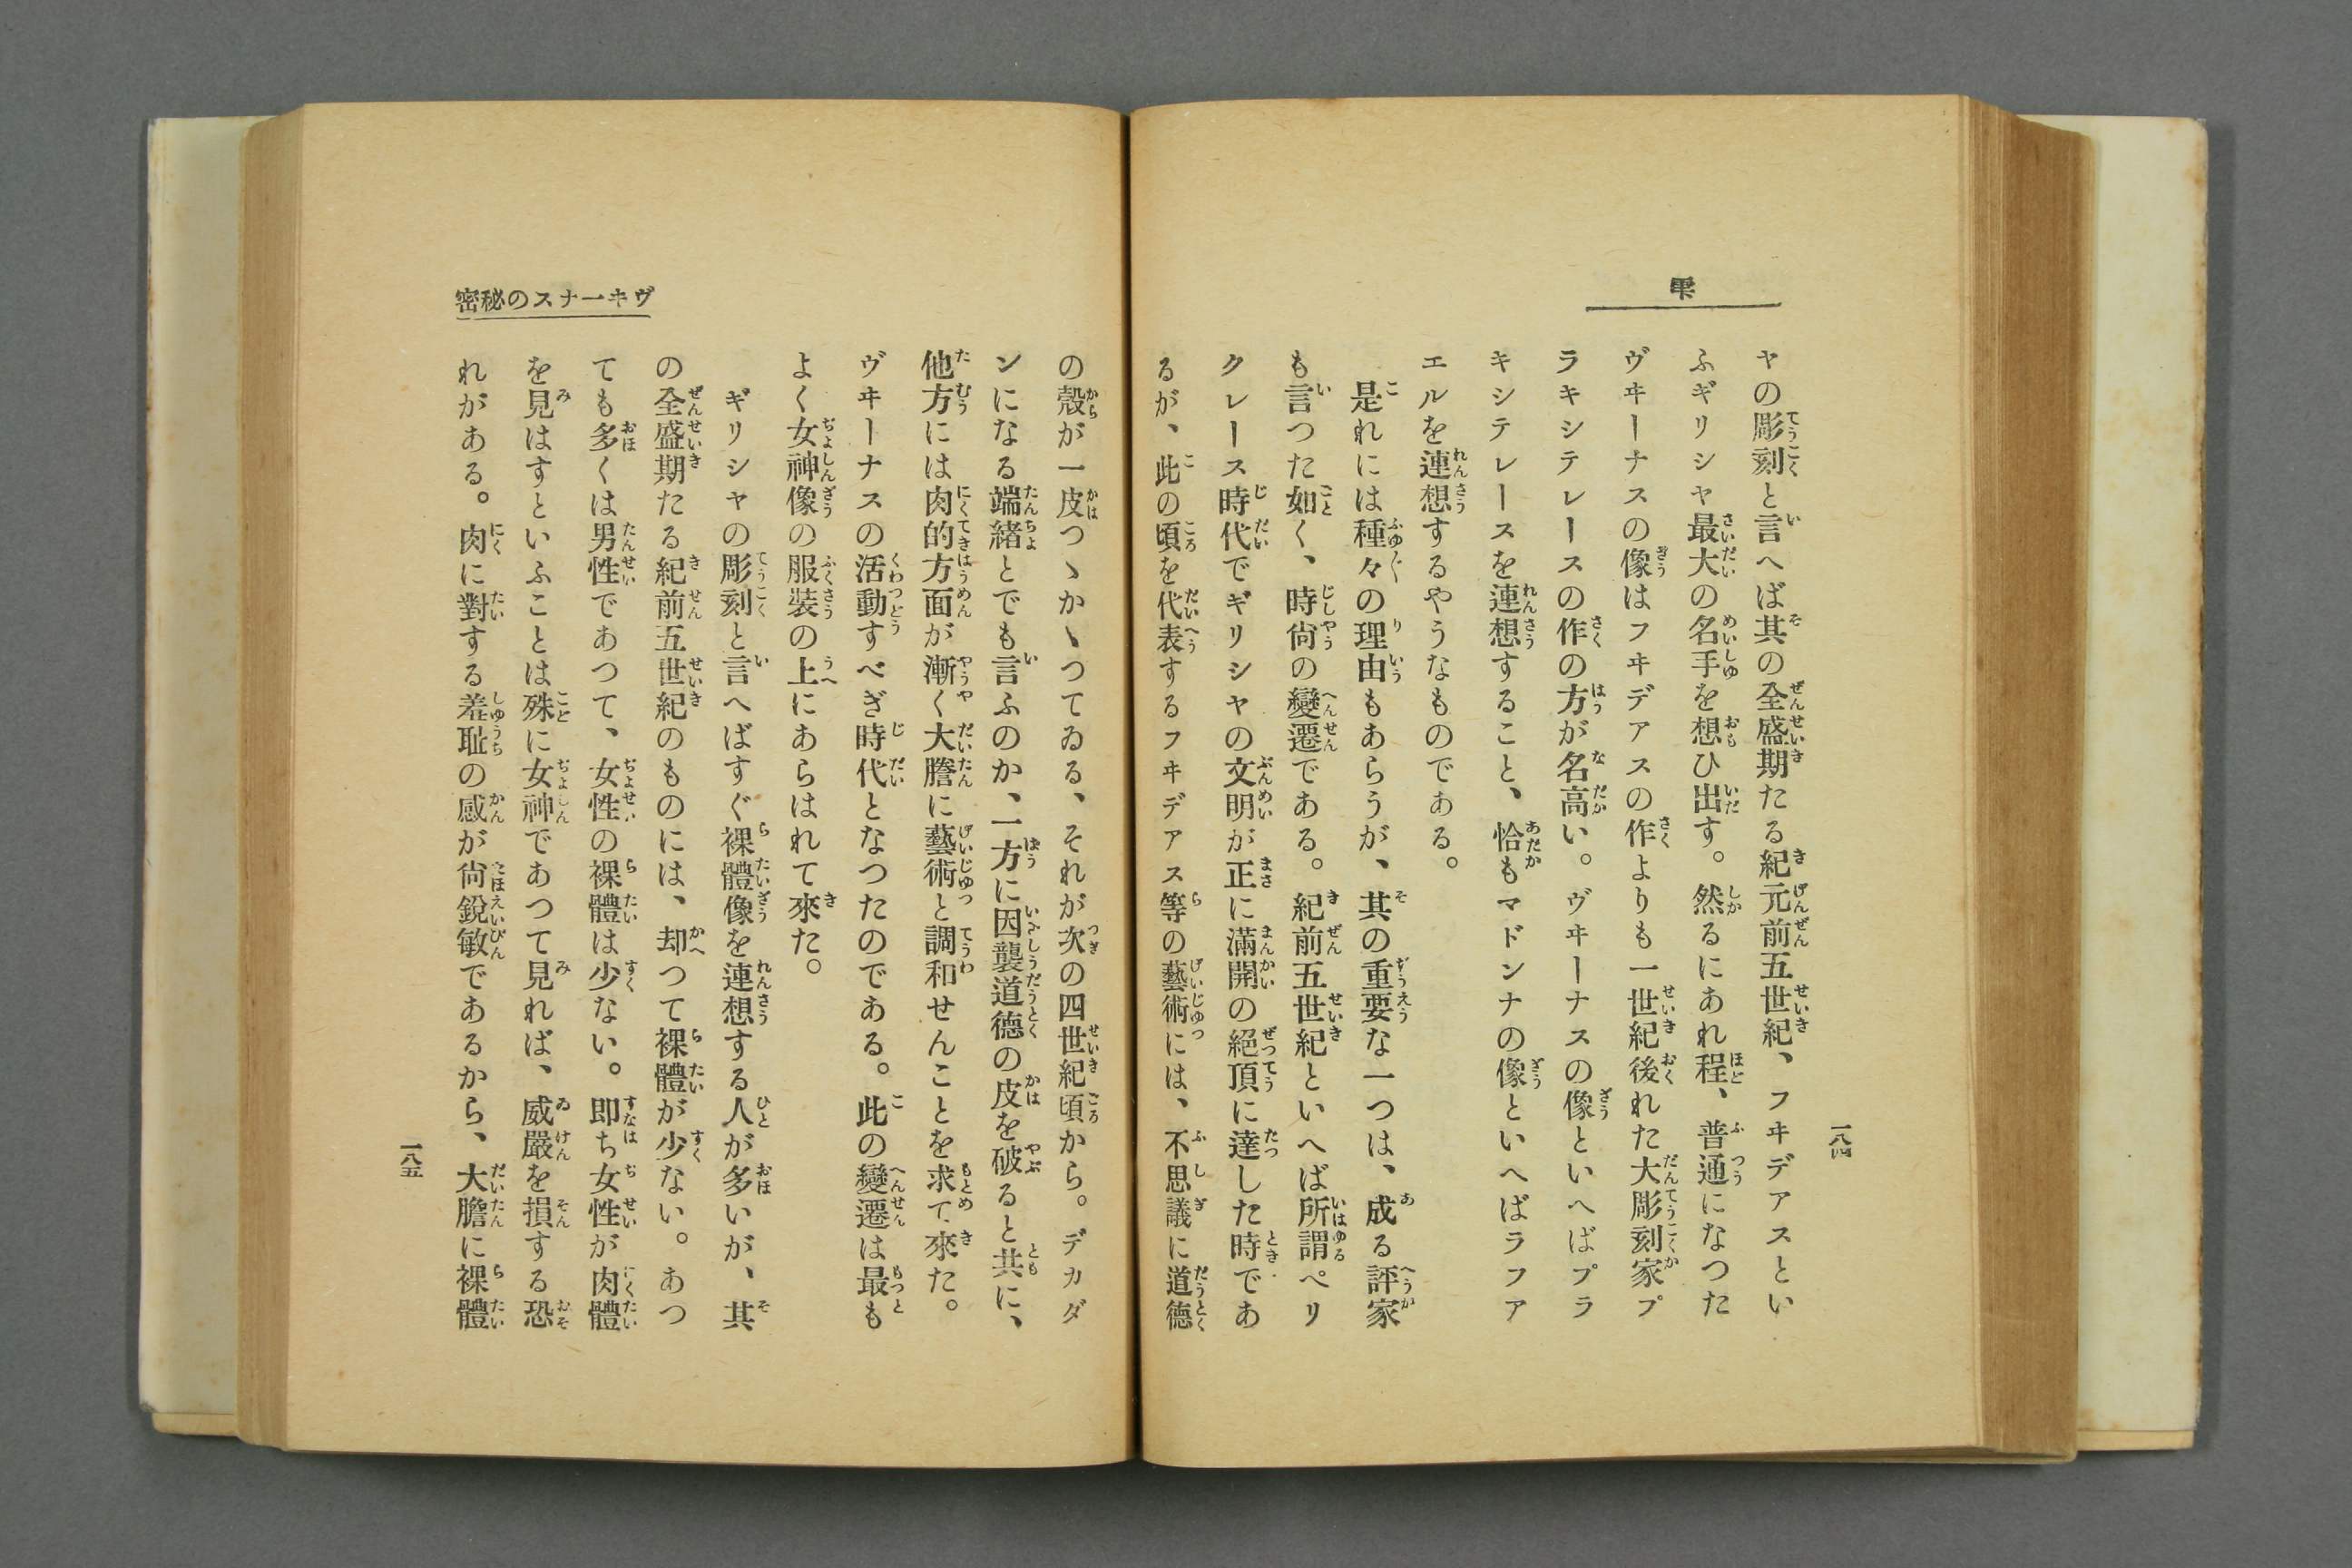 雫
ヤの彫刻と言へば其の全盛期たる紀元前五世紀、フヰデアスとい
ふギリシヤ最大の名手を想ひ出す。然るにあれ程、普通になつた
ヴヰーナスの像はフヰデアスの作よりも一世紀後れた大彫刻家プ
ラキシテレースの作の方が名高い。ヴヰーナスの像といへばプラ
キシテレースを連想すること、恰もマドンナの像といへばラファ
エルを連想するやうなものである。
是れには種々の理由もあらうが、其の重要な一つは、成る評家
も言つた如く、時尙の變遷である。紀前五世紀といへば所謂ペリ
クレース時代でギリシヤの文明が正に滿開の絕頂に達した時であ
るが、此の頃を代表するフヰデアス等の藝術には、不思議に道德
一八四
ヴヰーナスの秘密
の殼が一皮つゝかゝつてゐる、それが次の四世紀頃から。デカダ
ンになる端緒とでも言ふのか、一方に因襲道德の皮を破ると共に、
他方には肉的方面が漸く大膽に藝術と調和せんことを求て來た。
ヴヰーナスの活動すべぎ時代となつたのである。此の變遷は最も
よく女神像の服裝の上にあらはれて來た。
ギリシヤの彫刻と言へばすぐ裸體像を連想する人が多いが、其
の全盛期たる紀前五世紀のものには、却つて裸體が少ない。あつ
ても多くは男性であつて、女性の裸體は少ない。即ち女性が肉體
を見はすといふことは殊に女神であつて見れば、威嚴を損する恐
れがある。肉に對する羞耻の感が尙銳敏であるから、大膽に裸體
一八五